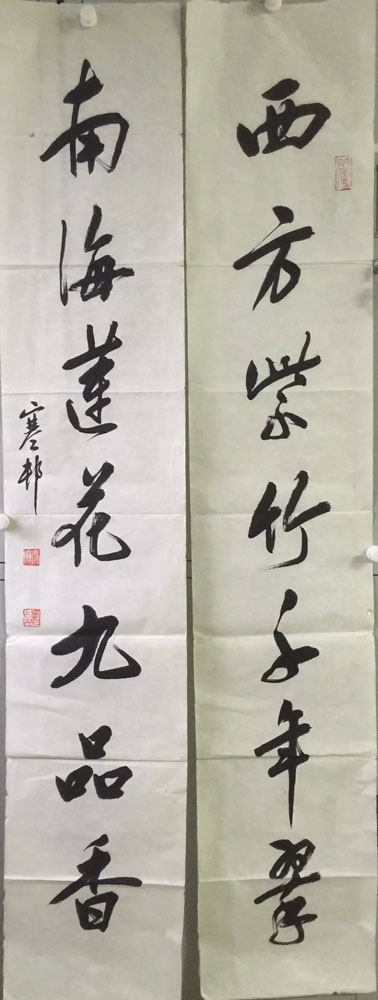 西方紫竹千年翠
南海莲花九品香